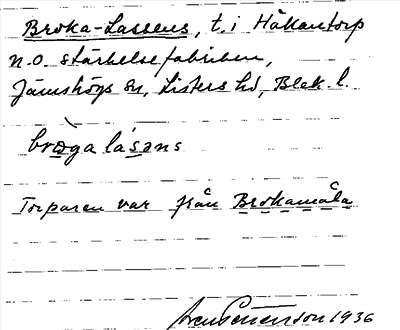 Broka-Lassens, t. i Håkantorp
n.o. stärkelsefabriken,
Jämshögs sn, Listers hd, Blek. l.
brògalásans
Torparen var från Brokamåla
1936